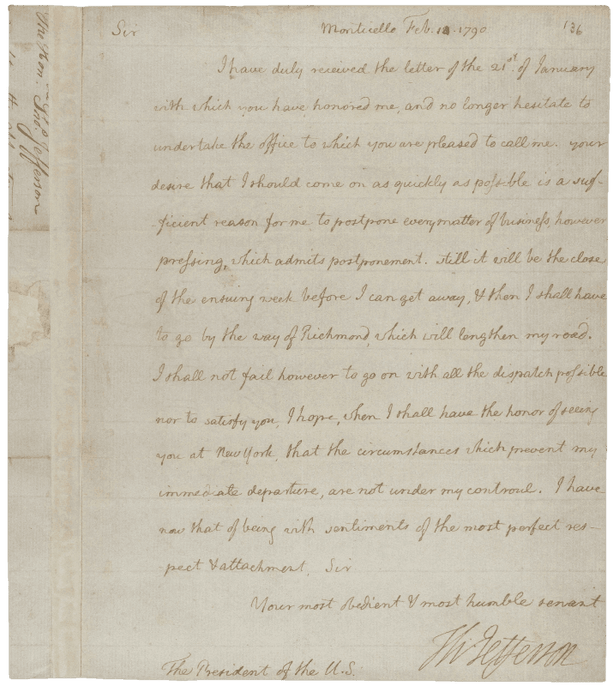 Sir Monticello Feb. 14. 1790. 136
I have duly received the letter of the 21st. of January
with which you have honored me, and no longer hesitate to
undertake the office to which you are pleased to call me. your
desire that I should come on as quickly as possible is a suf-
-ficient reason for me to postpone every matter of business, however
pressing, which admits postponement. still it will be the close
of the ensuing week before I can get away, & then I shall have
to go by the way of Richmond, which will lengthen my road.
I shall not fail however to go on with all the dispatch possible
nor to satisfy you, I hope, when I shall have the honor of seeing
you at New York, that the circumstances which prevent my
immediate departure, are not under my controul. I have
now that of being with sentiments of the most perfect res-
-pect & attachment, Sir
Your most obedient & most humble servant
Th: Jefferson
The President of the U.S.
The Hon. Tho. Jefferson